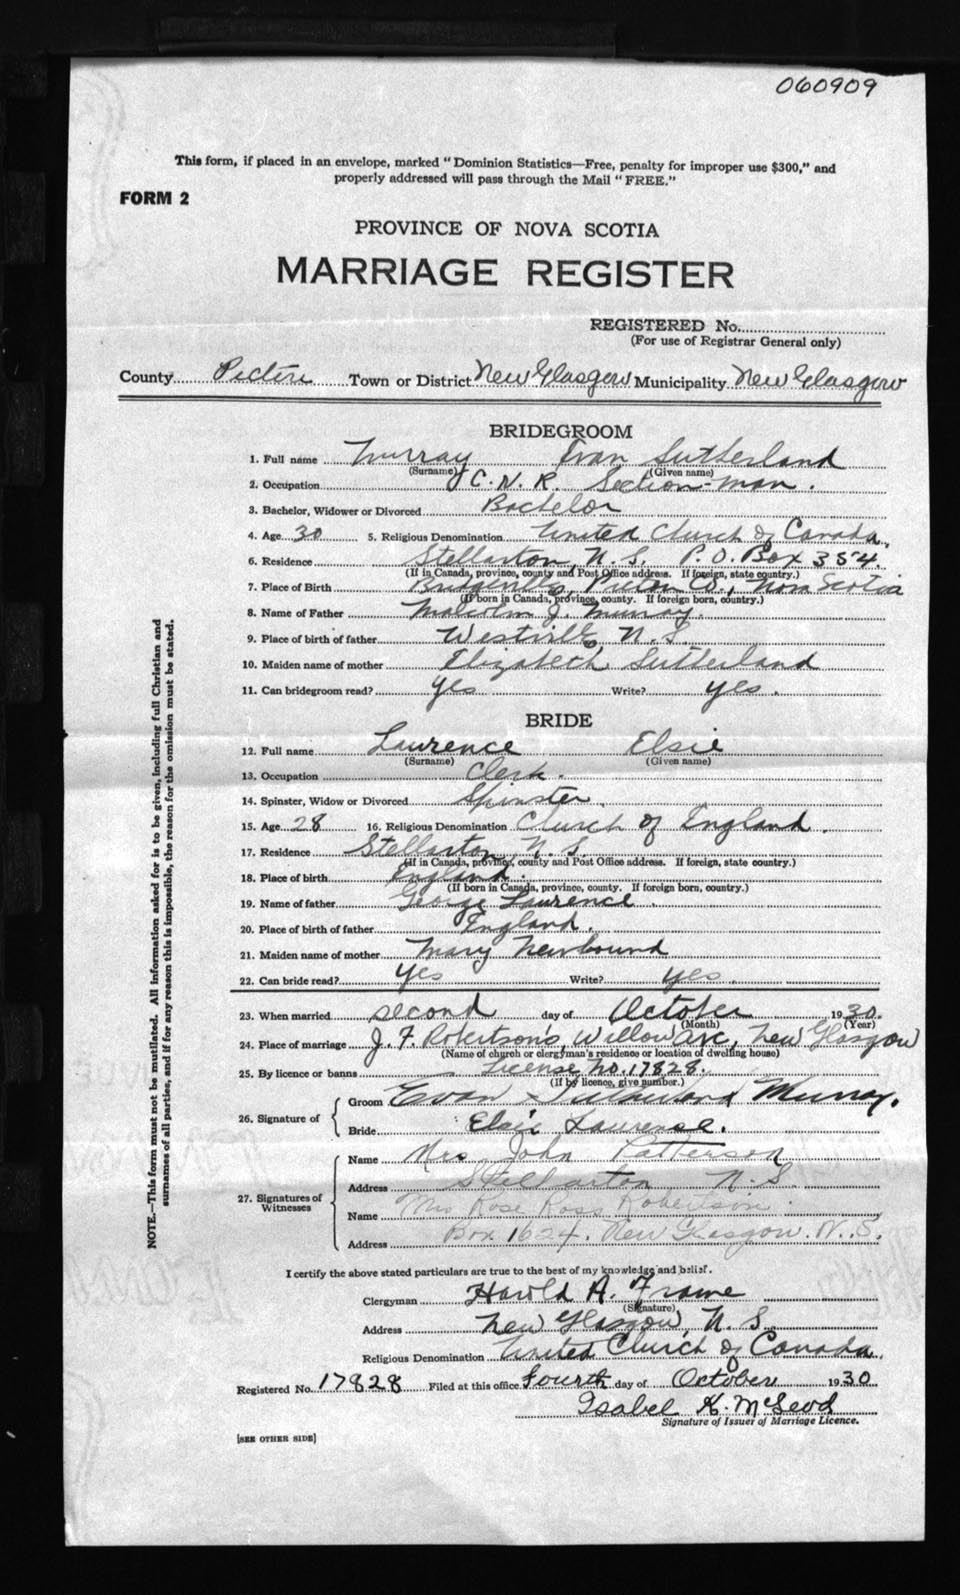 060909
This form, if placed in an envelope, marked "Dominion Statistics—Free, penalty for improper use $300," and
properly addressed will pass through the Mail "FREE."
FORM 2
PROVINCE OF NOVA SCOTIA
MARRIAGE REGISTER
REGISTERED No.
(For use of Registrar General only)
County Pictou Town or District New Glasgow Municipality New Glasgow
BRIDEGROOM
1. Full name Murray Evan Sutherland
(Surname) (Given name)
2. Occupation C. N. R. Section-man.
3. Bachelor, Widower or Divorced Bachelor
4. Age 30 5. Religious Denomination United Church of Canada.
6. Residence Stellarton, N. S. P. O. Box 354.
(If in Canada, province, county and Post Office address. If foreign, state country.)
7. Place of Birth Pictou Co., Nova Scotia
(If born in Canada, province, county. If foreign born, country.)
8. Name of Father Malcolm J. Murray.
9. Place of birth of father Westville, N. S.
10. Maiden name of mother Elizabeth Sutherland
11. Can bridegroom read? yes Write? yes.
BRIDE
12. Full name Laurence Elsie
(Surname) (Given name)
13. Occupation Clerk.
14. Spinster, Widow or Divorced Spinster.
15. Age 28 16. Religious Denomination Church of England.
17. Residence Stellarton, N. S.
(If in Canada, province, county and Post Office address. If foreign, state country.)
18. Place of birth England.
(If born in Canada, province, county. If foreign born, country.)
19. Name of father George Laurence.
20. Place of birth of father England.
21. Maiden name of mother Mary Newbound
22. Can bride read? yes Write? yes.
23. When married second day of October 1930.
(Month) (Year)
24. Place of marriage J. F. Robertson's, Willow ave, New Glasgow
(Name of church or clergyman's residence or location of dwelling house)
25. By licence or banns License No. 17828.
(If by licence, give number.)
26. Signature of
Groom Evan Sutherland Murray.
Bride Elsie Laurence.
27. Signatures of Witnesses
Name Mrs John Patterson
Address Stellarton N. S.
Name Mrs Rose Ross Robertson
Address Box 1624. New Glasgow. N. S.
I certify the above stated particulars are true to the best of my knowledge and belief.
Clergyman Harold A. Frame
(Signature)
Address New Glasgow, N. S.
Religious Denomination United Church of Canada.
Registered No. 17828 Filed at this office Fourth day of October 1930
Isabel K. McLeod
Signature of Issuer of Marriage Licence.
[SEE OTHER SIDE]
NOTE.—This form must not be mutilated. All information asked for is to be given, including full Christian and
surnames of all parties, and if for any reason this is impossible, the reason for the omission must be stated.